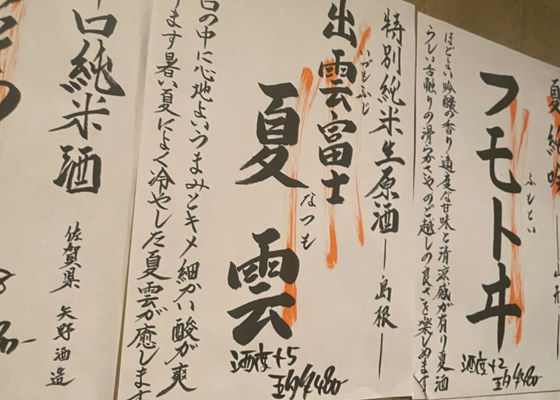 夏純吟
フモトヰ
ふもとい
ほどよい吟醸の香り適度な甘味と清涼感が有り夏酒
らしい舌触りの滑らかさやのど越しの良さを楽しめます
酒度+2
五勺¥480
特別純米生原酒―島根―
出雲富士
いづもふじ
夏雲
なつも
酒度+5
五勺¥480
の中に心地よいつまみとキメ細かい酸が爽
ます暑い夏によく冷やした夏雲が癒します
口純米酒
佐賀県 矢野酒造